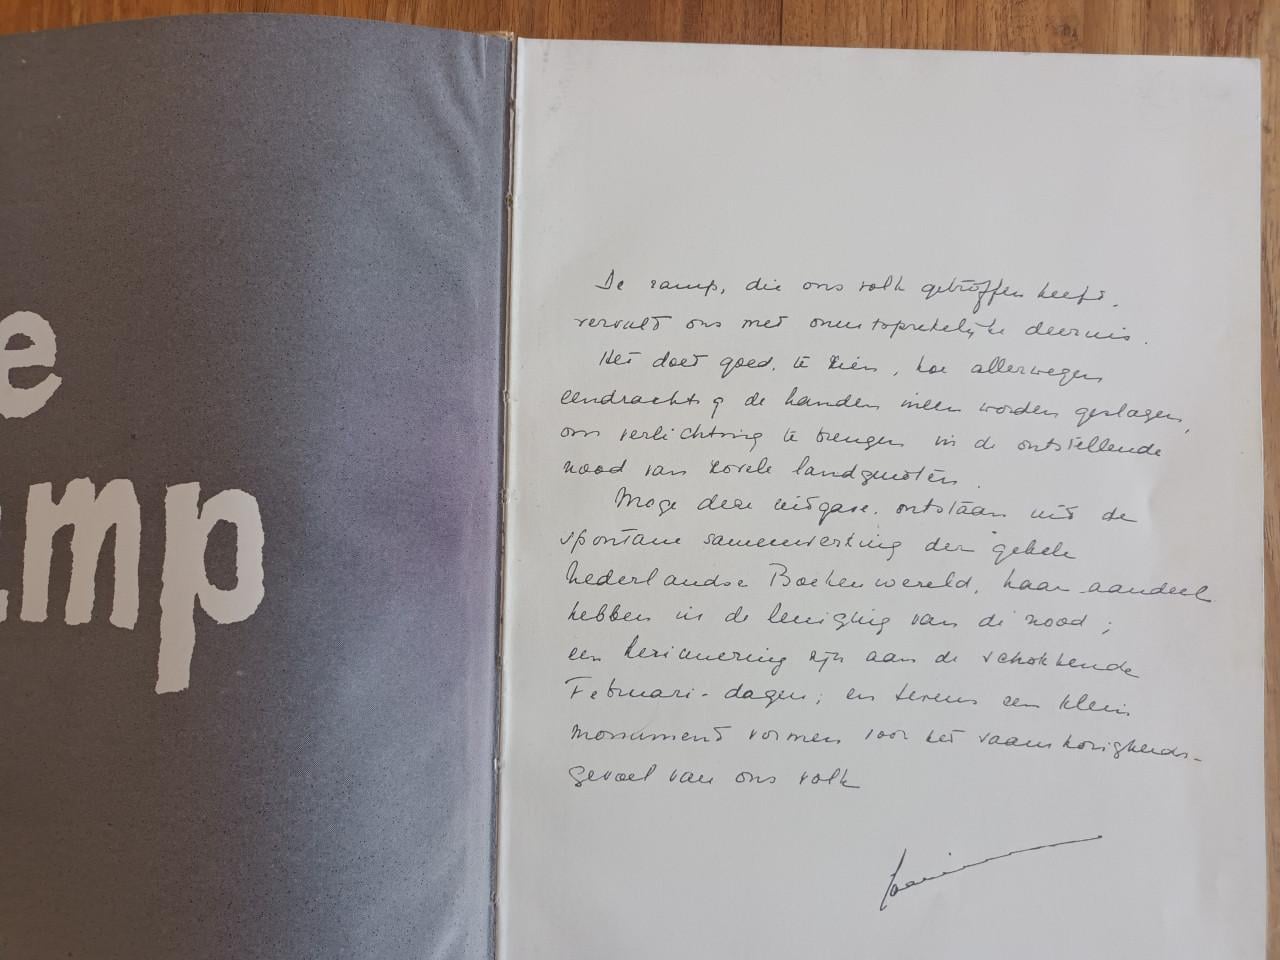 e
amp
De ramp, die ons volk getroffen heeft,
vervult ons met onuitsprekelijke deernis.
Het doet goed, te zien, hoe allerwegen
eendrachtig de handen ineen worden geslagen,
om verlichting te brengen in de ontstellende
nood van zovele landgenoten.
Moge deze uitgave, ontstaan uit de
spontane samenwerking der gehele
Nederlandse Boekenwereld, haar aandeel
hebben in de leniging van die nood;
een herinnering zijn aan de schokkende
Februari-dagen; en tevens een klein
monument vormen voor het saamhorigheids-
gevoel van ons volk